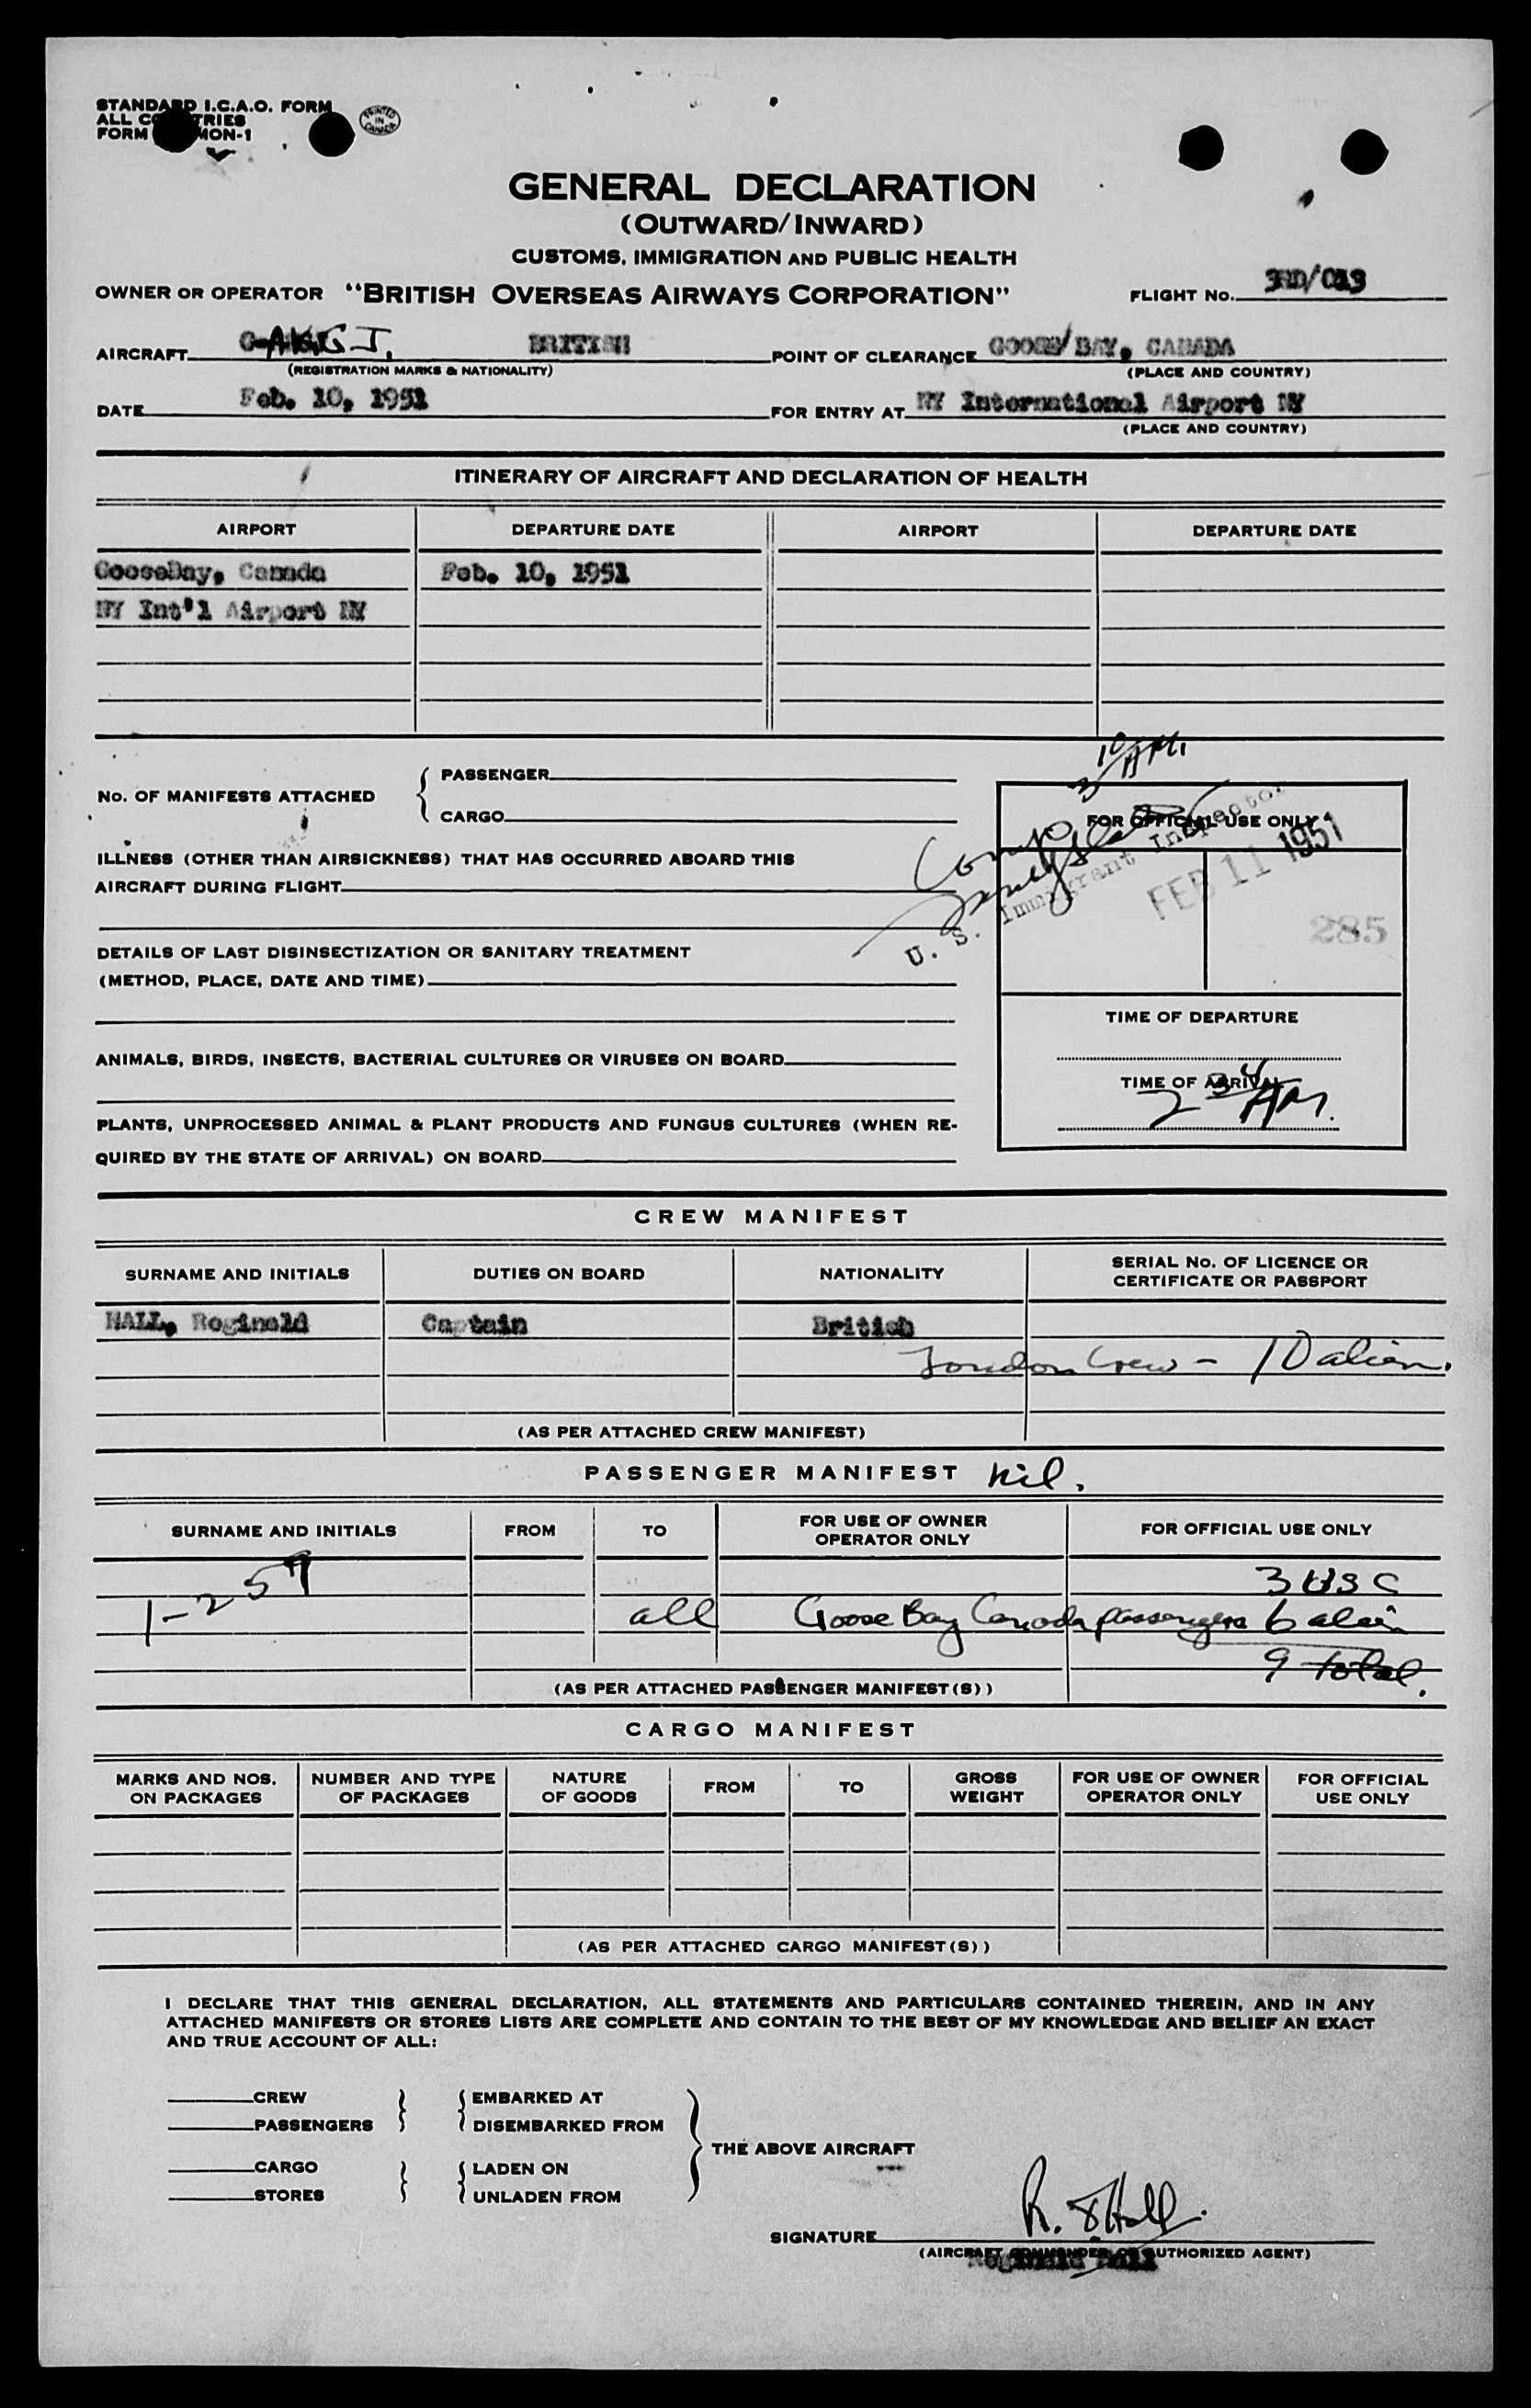 STANDARD I.C.A.O. FORM
ALL COUNTRIES
FORM MON-1
PRINTED IN CANADA
GENERAL DECLARATION
(OUTWARD/INWARD)
CUSTOMS, IMMIGRATION AND PUBLIC HEALTH
OWNER OR OPERATOR "BRITISH OVERSEAS AIRWAYS CORPORATION" FLIGHT No.
AIRCRAFT BRITISH POINT OF CLEARANCE GOOSE BAY, CANADA
(REGISTRATION MARKS & NATIONALITY) (PLACE AND COUNTRY)
DATE Feb. 10, 1951 FOR ENTRY AT NY International Airport NY
(PLACE AND COUNTRY)
ITINERARY OF AIRCRAFT AND DECLARATION OF HEALTH
AIRPORT DEPARTURE DATE AIRPORT DEPARTURE DATE
GooseBay, Canada Feb. 10, 1951
NY Int'l Airport NY
3 10 AM.
No. OF MANIFESTS ATTACHED { PASSENGER
CARGO
FOR OFFICIAL USE ONLY
U. S. Immigrant Inspector
FEB 11 1951
285
ILLNESS (OTHER THAN AIRSICKNESS) THAT HAS OCCURRED ABOARD THIS
AIRCRAFT DURING FLIGHT
DETAILS OF LAST DISINSECTIZATION OR SANITARY TREATMENT
(METHOD, PLACE, DATE AND TIME)
TIME OF DEPARTURE
ANIMALS, BIRDS, INSECTS, BACTERIAL CULTURES OR VIRUSES ON BOARD
TIME OF ARRIVAL
2 34 AM.
PLANTS, UNPROCESSED ANIMAL & PLANT PRODUCTS AND FUNGUS CULTURES (WHEN RE-
QUIRED BY THE STATE OF ARRIVAL) ON BOARD
CREW MANIFEST
SURNAME AND INITIALS DUTIES ON BOARD NATIONALITY SERIAL No. OF LICENCE OR
CERTIFICATE OR PASSPORT
HALL, Reginald Captain British
London Crew - 10 alien.
(AS PER ATTACHED CREW MANIFEST)
PASSENGER MANIFEST nil.
SURNAME AND INITIALS FROM TO FOR USE OF OWNER
OPERATOR ONLY FOR OFFICIAL USE ONLY
3 USC
1-257 all Goose Bay Canada passengers 6 alien
9 total.
(AS PER ATTACHED PASSENGER MANIFEST(S))
CARGO MANIFEST
MARKS AND NOS.
ON PACKAGES NUMBER AND TYPE
OF PACKAGES NATURE
OF GOODS FROM TO GROSS
WEIGHT FOR USE OF OWNER
OPERATOR ONLY FOR OFFICIAL
USE ONLY
(AS PER ATTACHED CARGO MANIFEST(S))
I DECLARE THAT THIS GENERAL DECLARATION, ALL STATEMENTS AND PARTICULARS CONTAINED THEREIN, AND IN ANY
ATTACHED MANIFESTS OR STORES LISTS ARE COMPLETE AND CONTAIN TO THE BEST OF MY KNOWLEDGE AND BELIEF AN EXACT
AND TRUE ACCOUNT OF ALL:
CREW } { EMBARKED AT
PASSENGERS DISEMBARKED FROM
THE ABOVE AIRCRAFT
CARGO } { LADEN ON
STORES UNLADEN FROM
SIGNATURE R. Hall.
(AIRCRAFT COMMANDER OR AUTHORIZED AGENT)
Reginald Hall